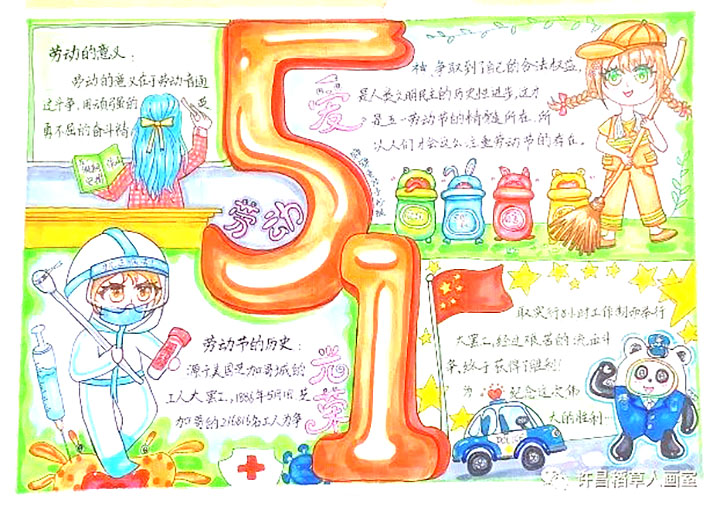 劳动的意义:
劳动的意义在于劳动者通
过斗争,用顽强的
勇不屈的奋斗精
神,争取到了自己的合法权益,
是人类文明民主的历史性进步,这才
是五一劳动节的精髓所在,所
以人们才会这么注重劳动节的存在。
5
1
爱
劳动
光荣
劳动节的历史:
源于美国芝加哥城的
工人大罢工,1886年5月1日,芝
加哥的216816名工人为争
取实行8小时工作制而举行
大罢工,经过艰苦的流血斗
争,终于获得了胜利!
为纪念这次伟
大的胜利
POLICE
许昌稻草人画室